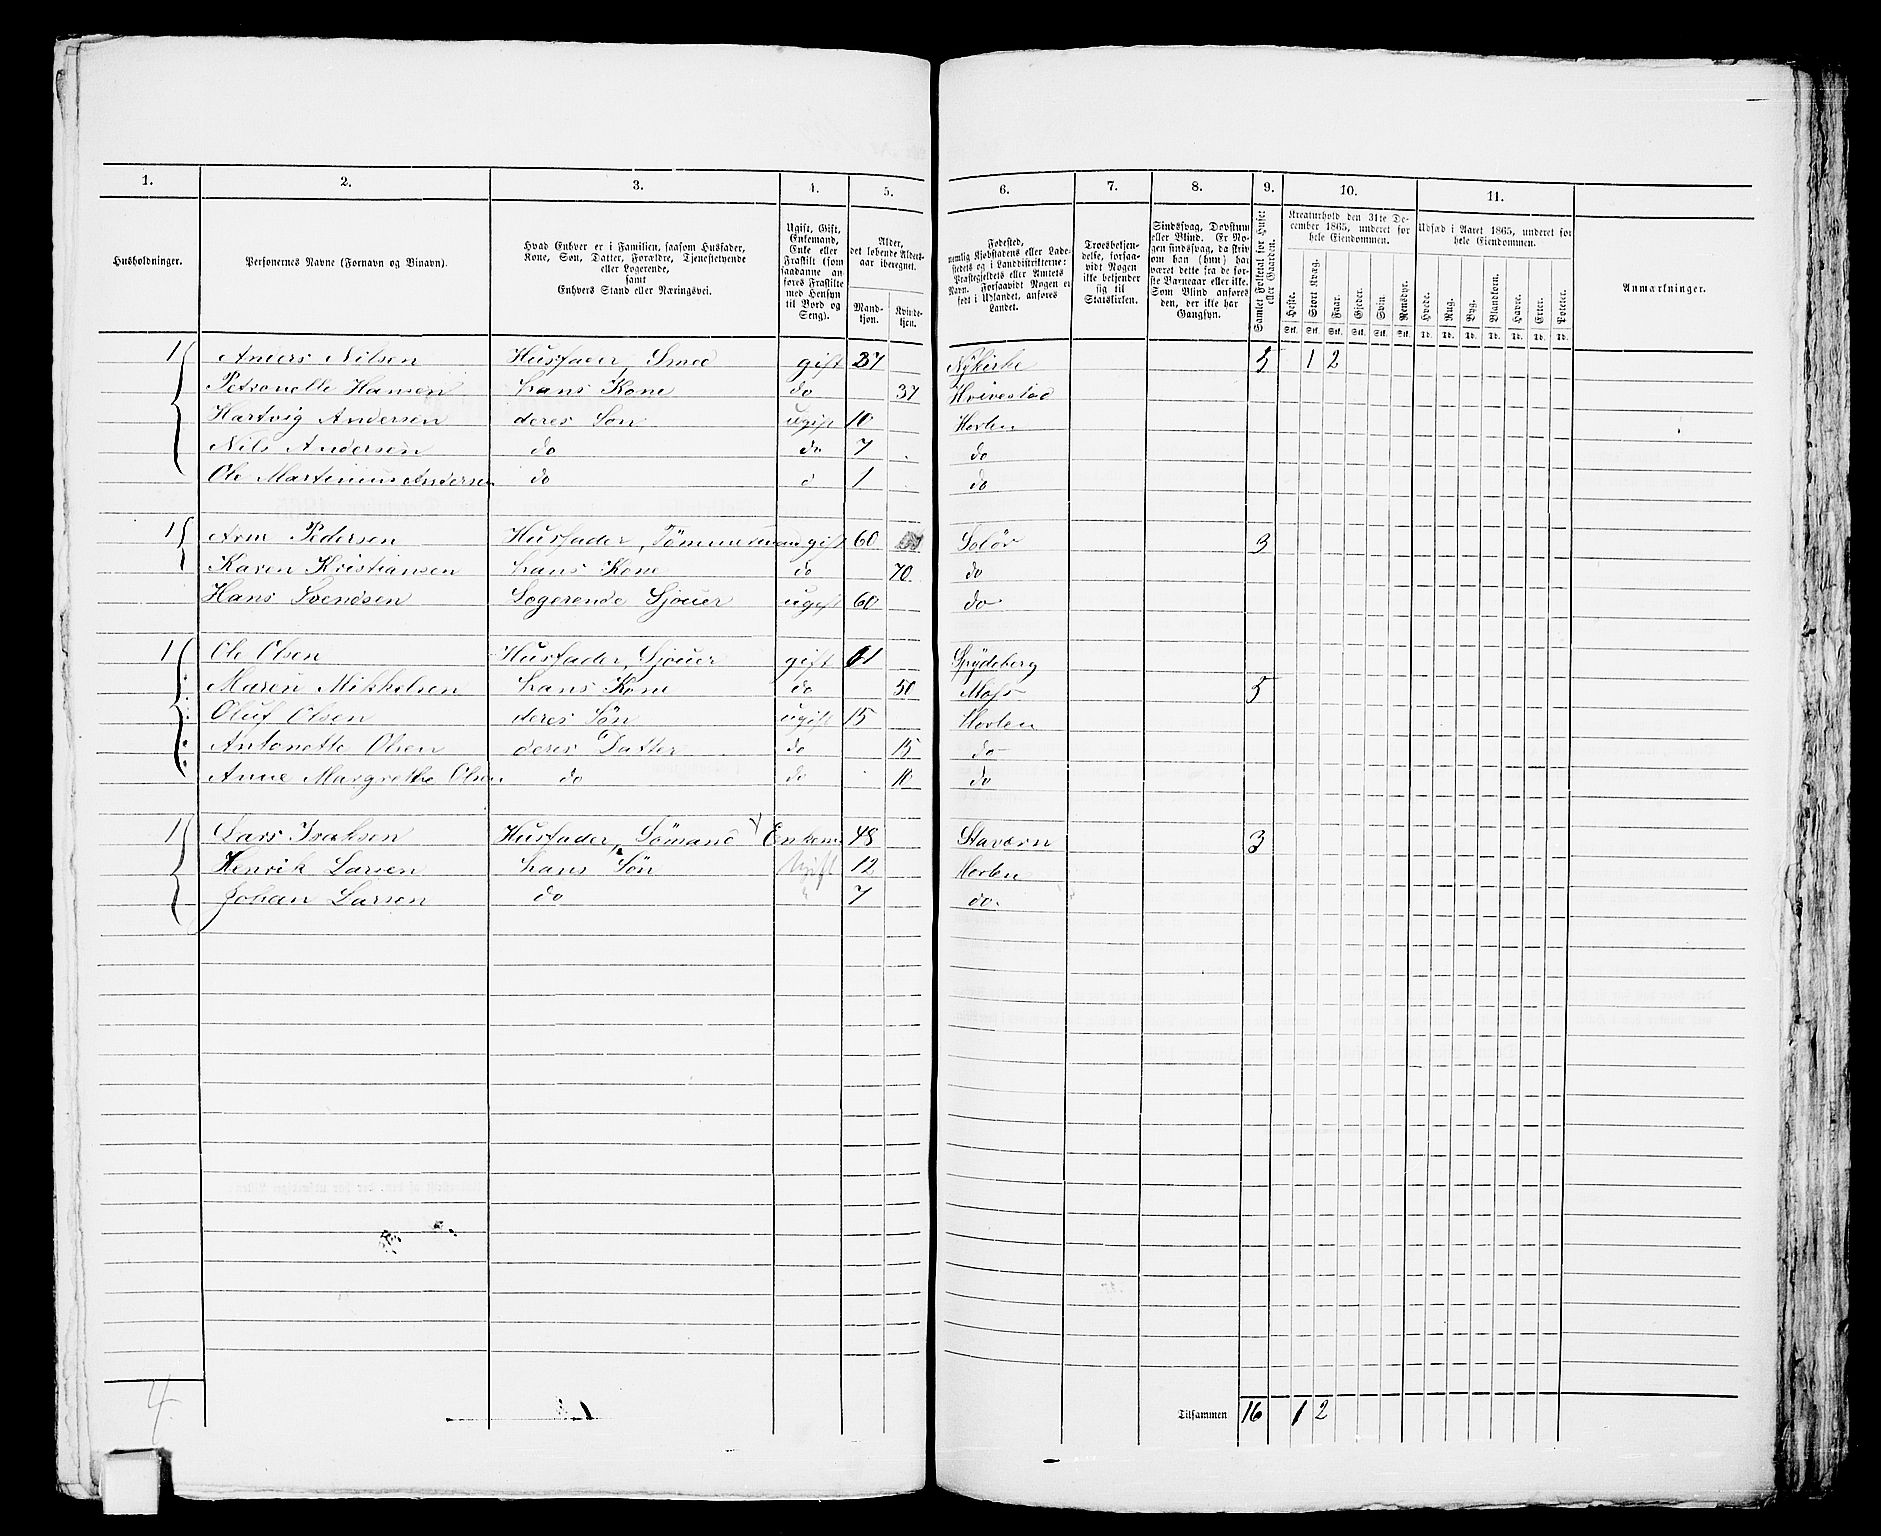 1. 2. 3. 4. 5. 6. 7. 8. 9. 10. 11.
Husholdninger.
Personernes Navne (Fornavn og Binavn).
Hvad Enhver er i Familien, saasom Husfader,
Kone, Søn, Datter, Forældre, Tjenestetyende
eller Logerende,
samt
Enhvers Stand eller Næringsvei.
Ugift, Gift,
Enkemand,
Enke eller
Fraskilt (som
saadanne an-
føres Fraskilte
med Hensyn
til Bord og
Seng).
Alder,
det løbende Alders-
aar iberegnet.
Mand-
kjøn.
Kvinde-
kjøn.
Fødested,
nemlig Kjøbstadens eller Lade-
stedets og i Landdistrikterne:
Præstegjeldets eller Amtets
Navn. Forsaavidt Nogen er
født i Udlandet, anføres
Landet.
Troesbekjen-
delse, forsaa-
vidt Nogen
ikke bekjender
sig til
Statskirken.
Sindssvag, Døvstum
eller Blind. Er No-
gen sindssvag, da skriv
om han (hun) har
været dette fra de før-
ste Barneaar eller ikke.
Som Blind anføres
den, der ikke har
Gangsyn.
Samlet Folketal for Huset
eller Gaarden.
Kreaturhold den 31te De-
cember 1865, underet for
hele Eiendommen.
Heste. Stort Kvæg. Faar. Gjeder. Svin. Rensdyr.
Stk. Stk. Stk. Stk. Stk. Stk.
Udsæd i Aaret 1865, underet for
hele Eiendommen.
Hvede. Rug. Byg. Blandkorn. Havre. Erter. Poteter.
Td. Td. Td. Td. Td. Td. Td.
Anmærkninger.
1 Anders Nilsen Husfader, Smed gift 37 Nykirke 5 1 2
Petronelle Hansen hans Kone do 37 Hvivestad
Hartvig Andersen deres Søn ugift 10 Horten
Nils Andersen do do 7 do
Ole Martinius Andersen do d 1 do
1 Arne Pedersen Husfader, Tömmermand gift 60 Solör 3
Karen Kristiansen hans Kone do 70 do
Hans Svendsen Logerende Sjouer ugift 60 do
1 Ole Olsen Husfader, Sjouer gift 61 Spydeberg
Maren Mikkelsen hans Kone do 50 Moss 5
Oluf Olsen deres Sön ugift 15 Horten
Antonette Olsen deres Datter do 15 do
Anne Margrethe Olsen do do 10 do
1 Lars Isaksen Husfader, Sömand Enkem 48 Stavern 3
Henrik Larsen hans Sön Ugift 12 Horten
Johan Larsen do " 7 do
4
Tilsammen 16 1 2